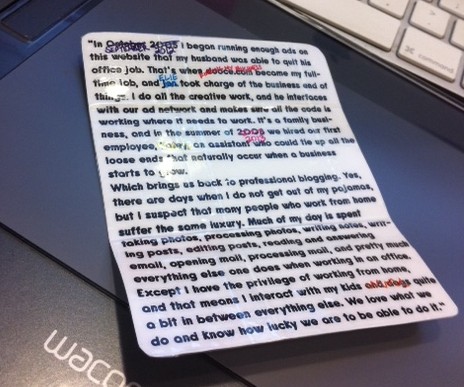 "In October 2005 I began running enough ads on
SEPTEMBER 2012
this website that my husband was able to quit his
office job. That's when dooce.com became my full-
ELIE
time job, and Jon took charge of the business end of
things. I do all the creative work, and he interfaces
with our ad network and makes sure all the code is
working where it needs to work. It's a family busi-
ness, and in the summer of 2008 we hired our first
2013
employee, an assistant who could tie up all the
loose ends that naturally occur when a business
starts to grow.
Which brings us back to professional blogging. Yes,
there are days when I do not get out of my pajamas,
but I suspect that many people who work from home
suffer the same luxury. Much of my day is spent
taking photos, processing photos, writing notes, writ-
ing posts, editing posts, reading and answering
email, opening mail, processing mail, and pretty much
everything else one does when working in an office.
Except I have the privilege of working from home,
and that means I interact with my kids and dogs quite
a bit in between everything else. We love what we
do and know how lucky we are to be able to do it."
wacom
Command